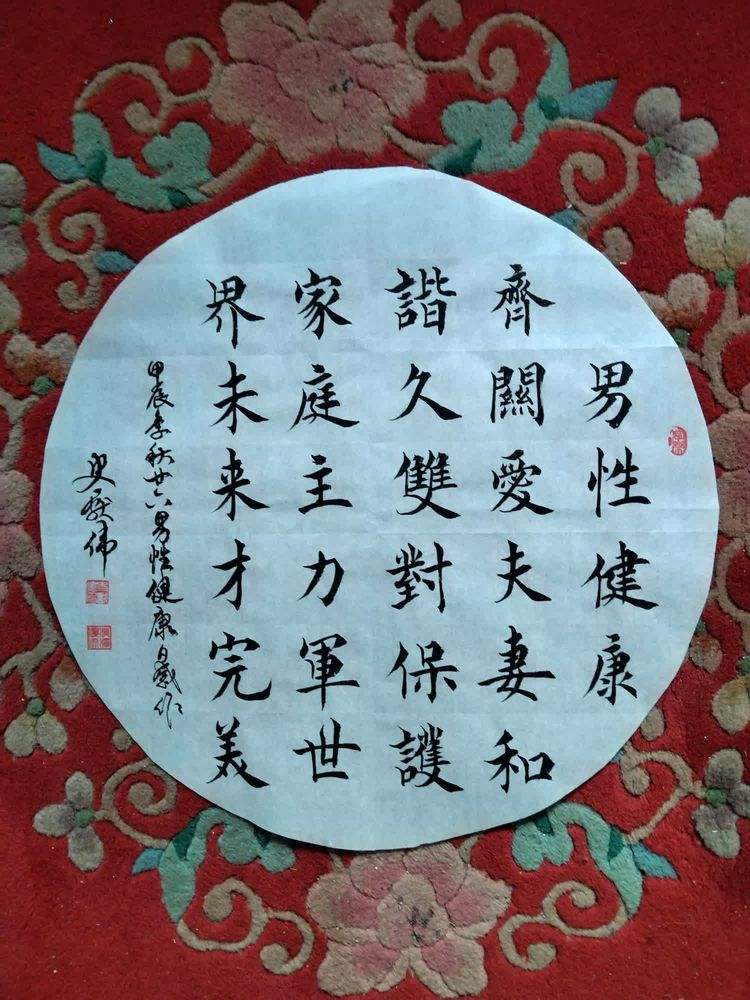 男性健康
齊關愛夫妻和
諧久雙對保護
家庭主力軍世
界未来才完美
甲辰季秋廿六男性健康日感作